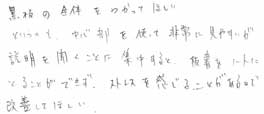 黒板の全体をつかってほしい
というのも、中心部を使って非常に見やすいが
説明を聞くことに集中すると、板書をノートに
とることができず、ストレスを感じることがあるので
改善してほしい